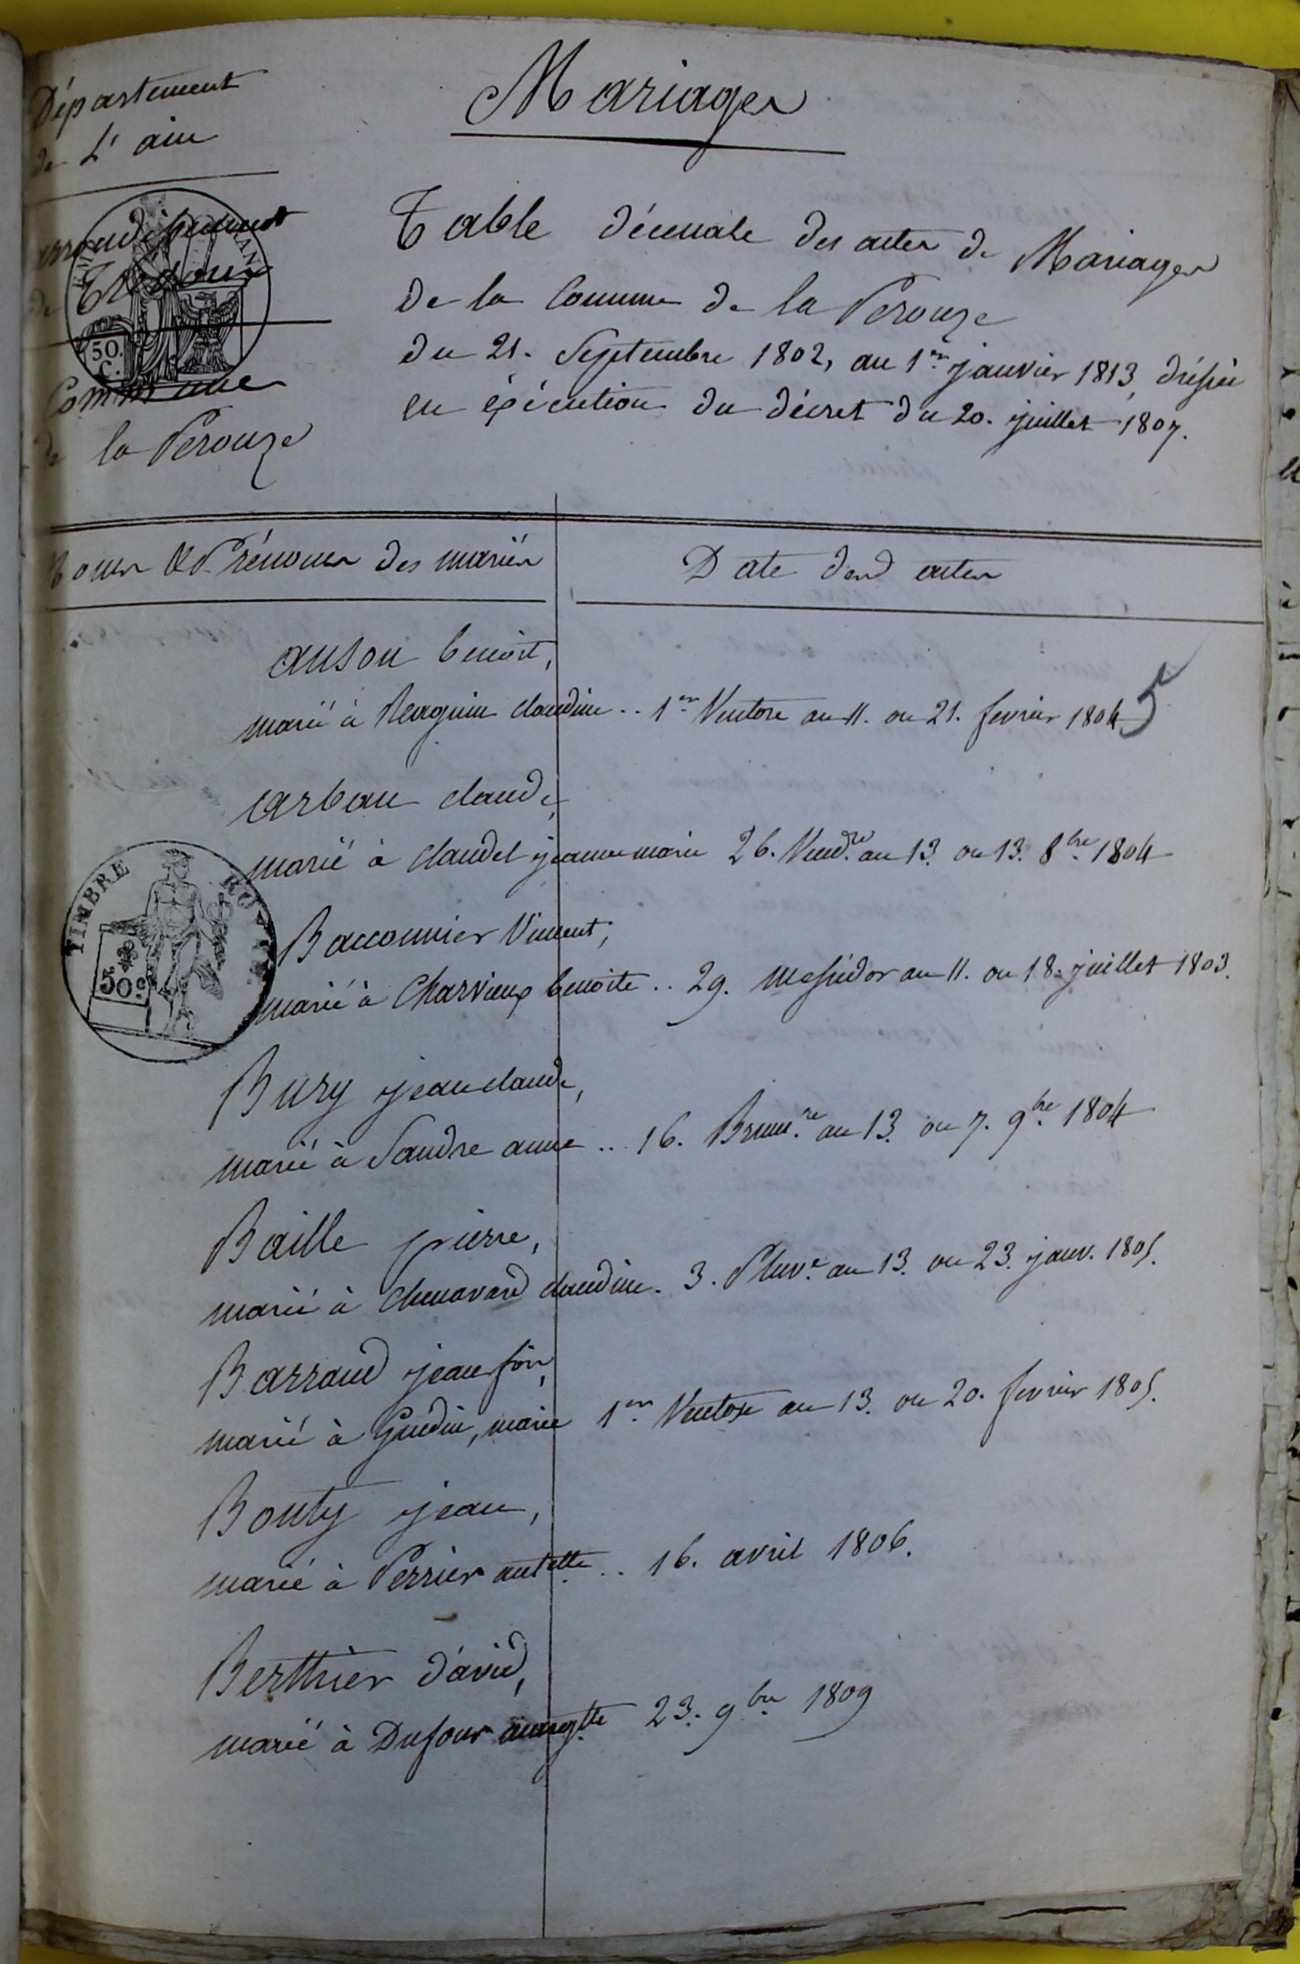 Mariages
Département
de L'ain
arrondissement
de Trevoux
Commune
de la Perouze
50.
C.
Table décenale des actes de Mariages
de la Commune de la Perouze
du 21. Septembre 1802, au 1er janvier 1813, dréssée
en éxécution du décret du 20. juillet 1807.
Noms & Prénoms des mariés
Date desd actes
anson benoit,
marié à claudine .. 1er Ventose an 11. ou 21. fevrier 1804
5
arban claude,
marié à claudel jeanne marie 26. Vend.re an 13. ou 13. 8bre 1804
TIMBRE ROYAL
50c
Bacconnier Vincent,
marié à Charvieux benoite .. 29. Messidor an 11. ou 18. juillet 1803.
Bury jean claude,
marié à Sandre anne .. 16. Brum.re an 13. ou 7. 9bre 1804
Baille pierre,
marié à Chenavard claudine. 3. Pluv.e an 13. ou 23. janv. 1805.
Barraud jean
marié à Guedin, marie 1er Ventose an 13. ou 20. fevrier 1805.
Bouty jean,
marié à Perrier antette .. 16. avril 1806.
Berthier david,
marié à Dufour 23. 9bre 1809